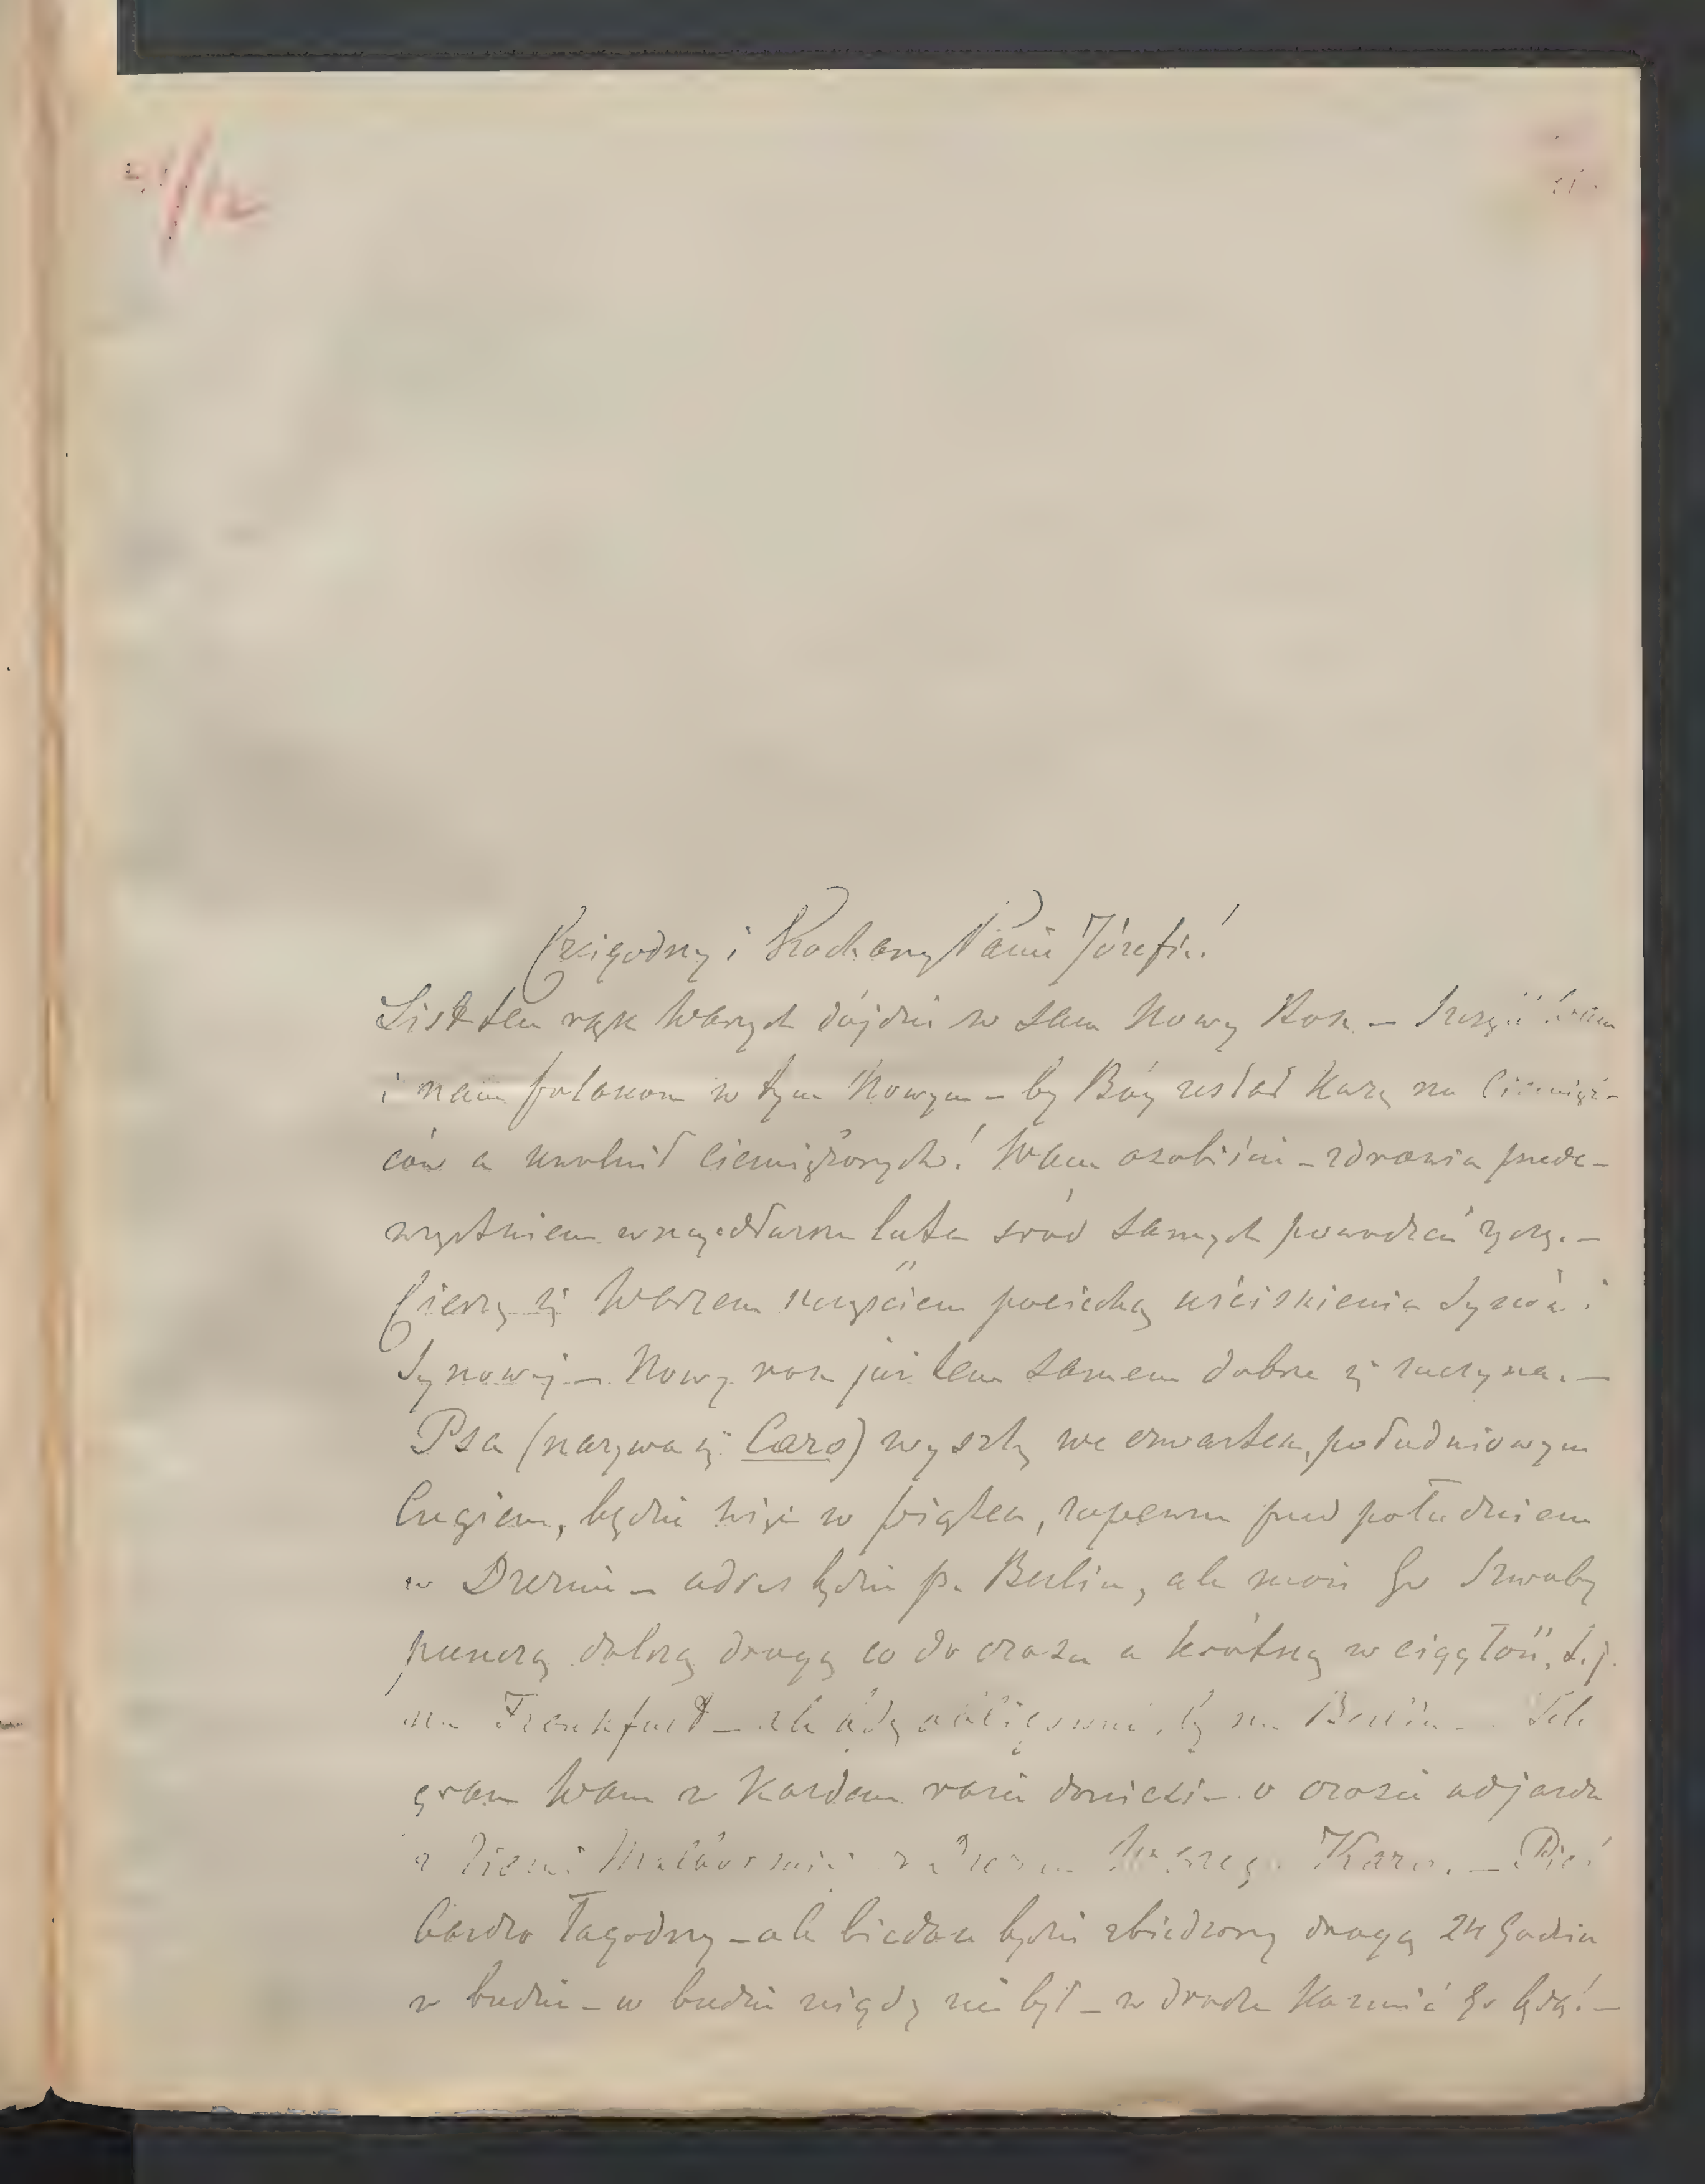 /12
Czcigodny i Kochany Panie Józefie!
List ten rąk Waszych dójdzie w sam Nowy Rok. – Szczęść Wam
i nam Polakom w tym Nowym – by Bóg zesłał karę na Ciemięż-
ców a uwolnił ciemiężonych! Wam osobiście – zdrowia przede-
wszystkiem w najdłuższe lata śród samych powodzeń życzę. –
Cieszę się Waszem szczęściem pociechą uściśnienia Synów i
Synowej – Nowy rok już tem samem dobrze się zaczyna. –
Psa (nazywa się Caro) wyszlę we czwartek, południowym
Cugiem, będzie więc w piątek, zapewne przed południem
w Dreźnie – adres będzie p. Berlin, ale może go Szwaby
puszczą dalszą drogą co do czasu a krótszą w ciągłość, t.j.
na Frankfurt – ale będą na Berlin – Tele
gram Wam w każdem razie doniesie o czasie odjazdu
z Waszego Karo. – Pies
bardzo łagodny – ale biedak będzie zbiedzony drogą 24 godzin
w budzie – w budzie nigdy nie był – w drodze karmić go będą! –